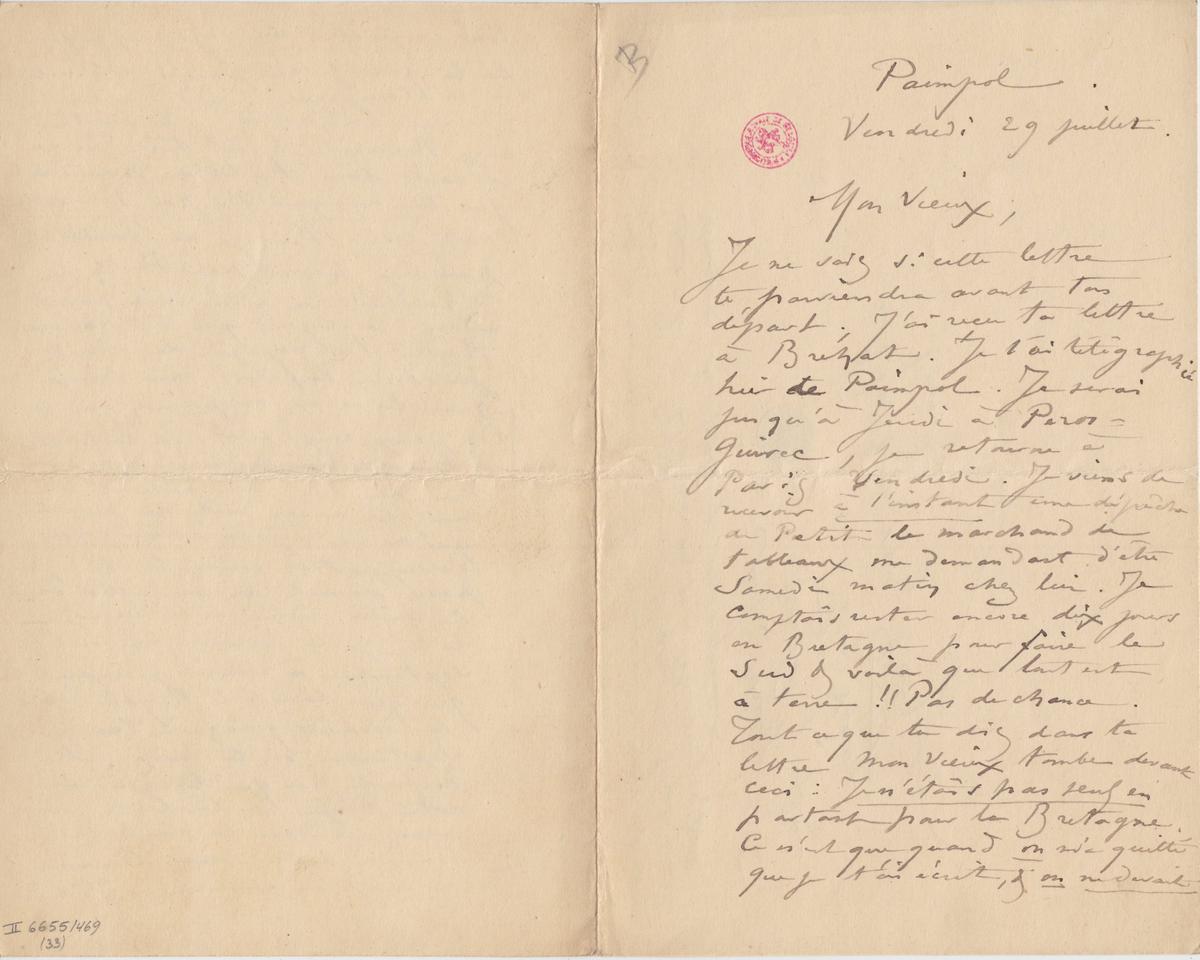 Paimpol.
Vendredi 29 juillet.
Mon Vieux,
Je ne sais si cette lettre
te parviendra avant ton
départ. J'ai reçu ta lettre
à Bréhat. Je t'ai télégraphié
hier de Paimpol. Je serai
jusqu'à Jeudi à Peros=
Guirec, je retourne à
Paris Vendredi. Je viens de
recevoir à l'instant une dépêche
de Petit le marchand de
tableaux me demandant d'être
Samedi matin chez lui. Je
comptais rester encore dix jours
en Bretagne pour faire le
Sud & voilà que tout est
à terre !! Pas de chance.
Tout ce que tu dis dans ta
lettre mon Vieux tombe devant
ceci : Je n'étais pas seul en
partant pour la Bretagne.
Ce n'est que quand on m'a quitté
que je t'ai écrit, & on ne devait
II 6655/469
(33)